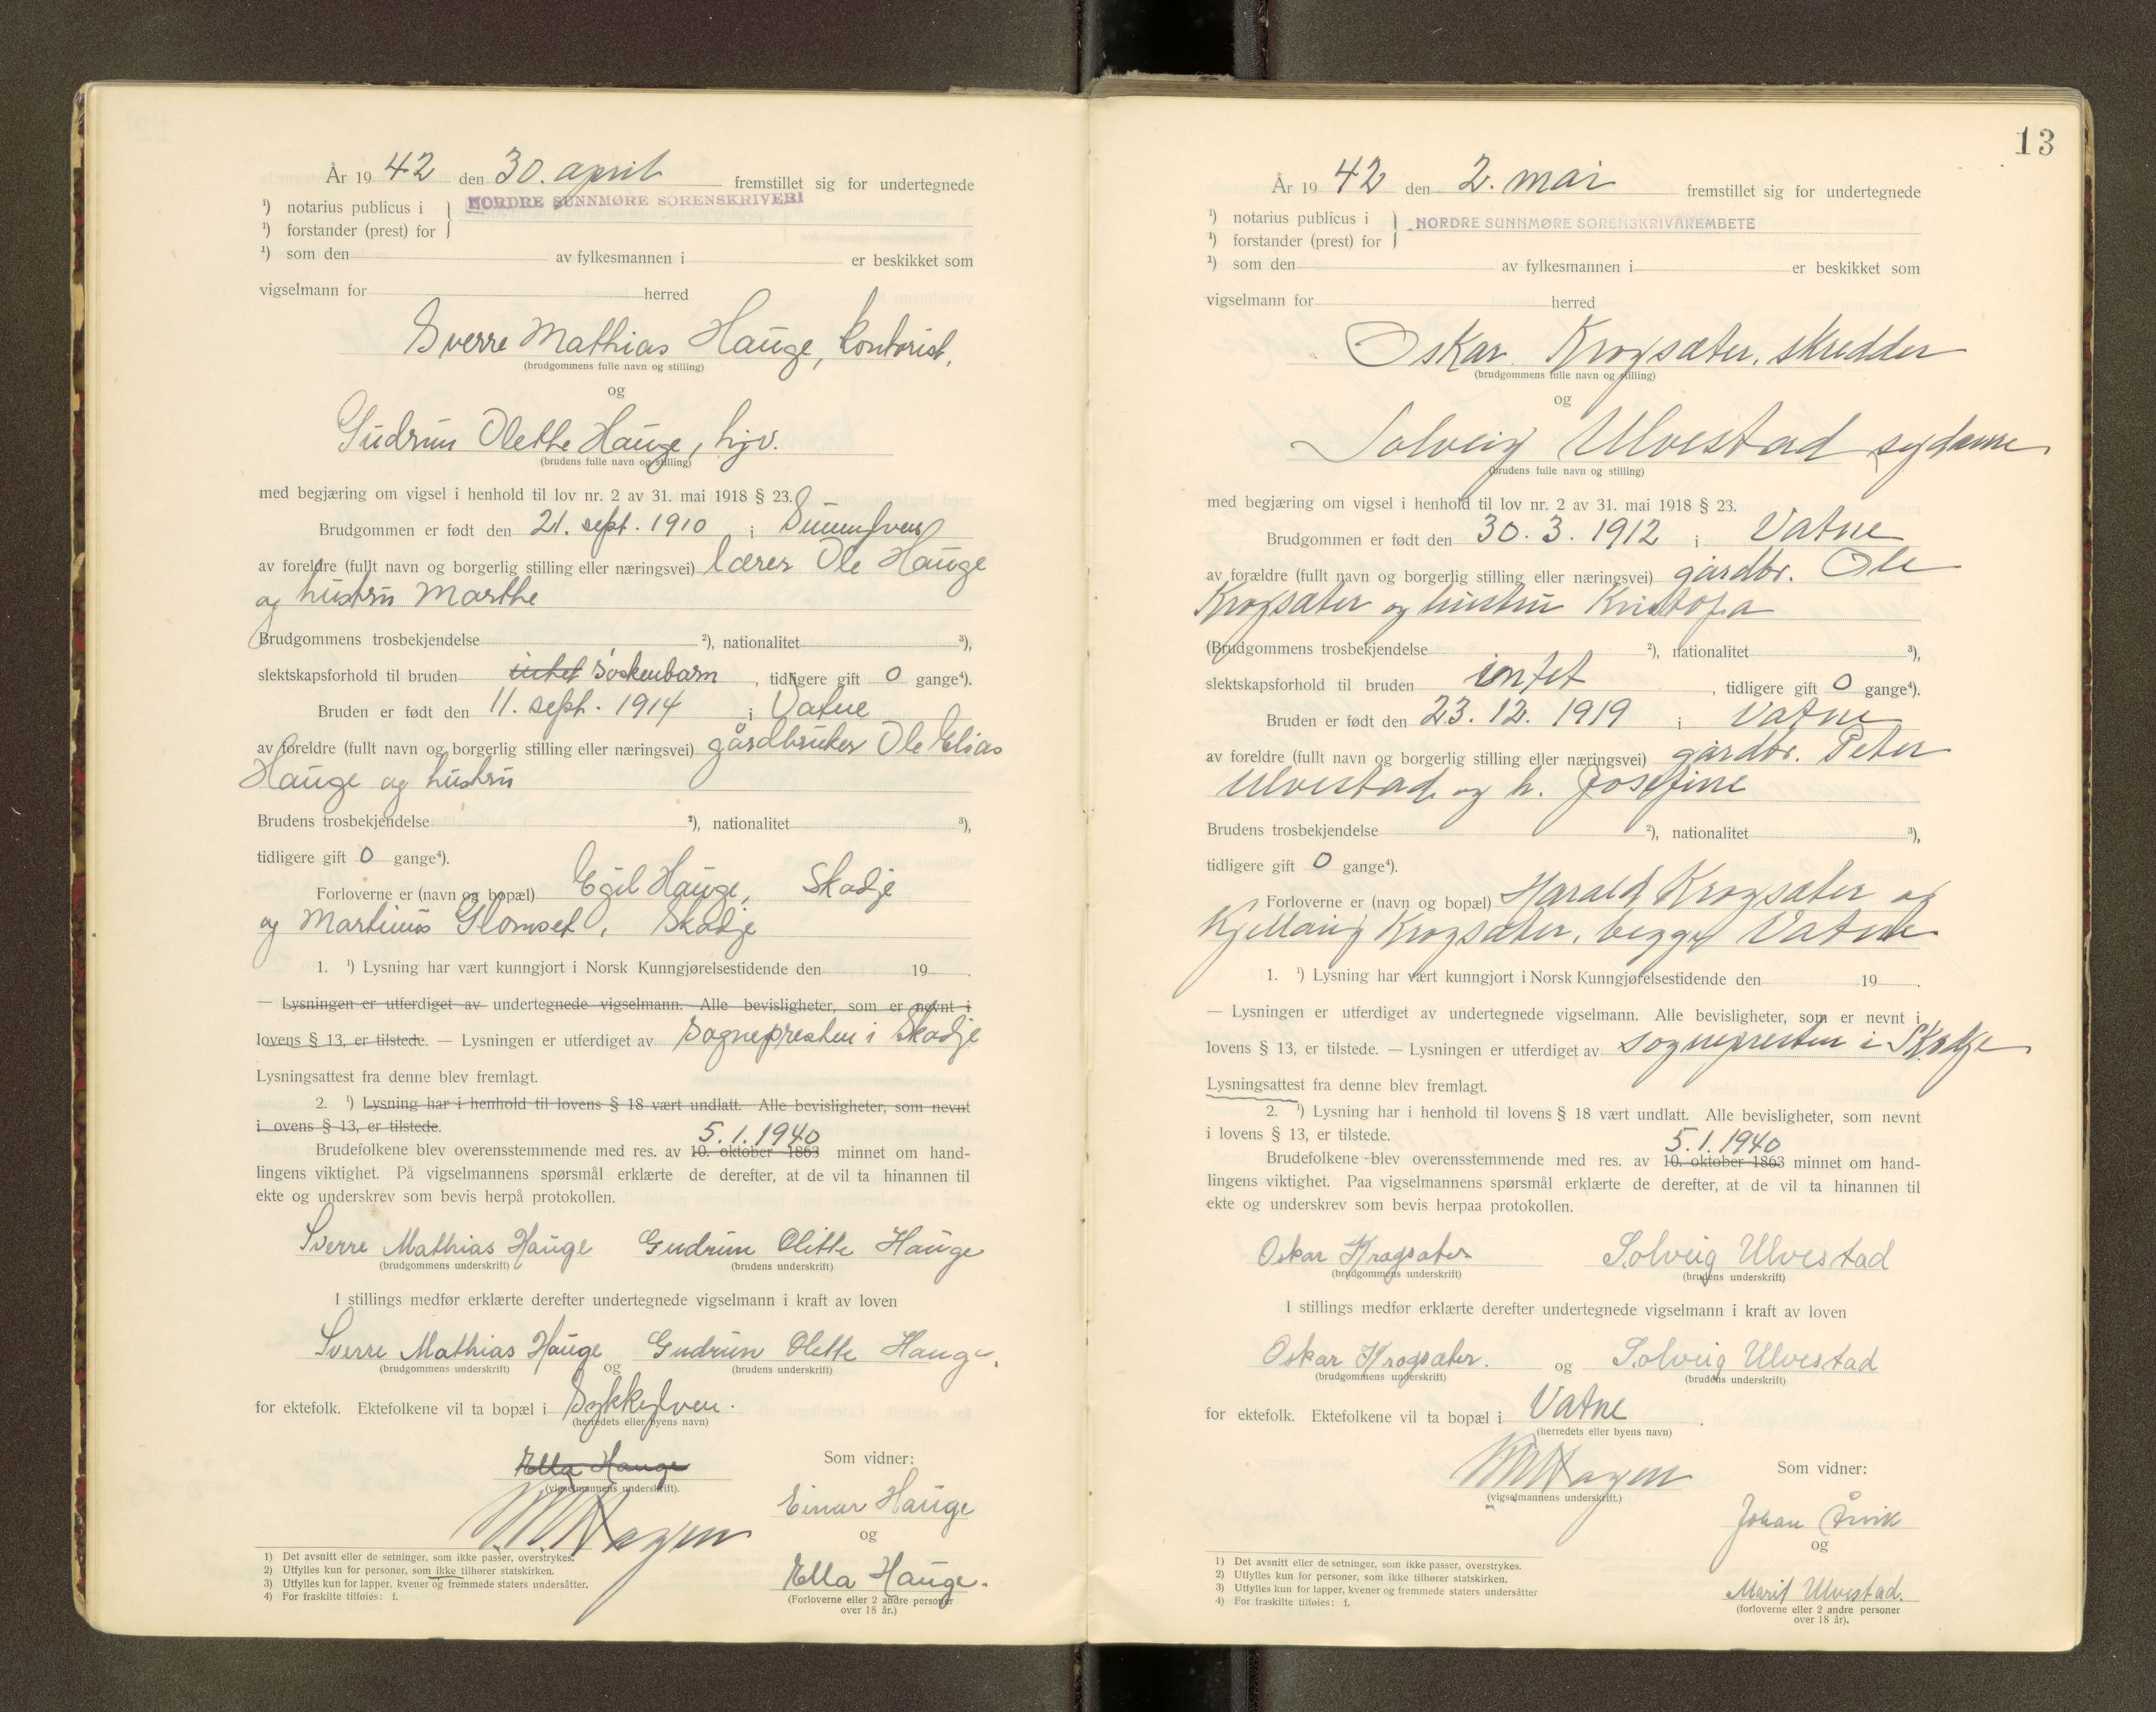 År 19 42 den 30. april fremstillet sig for undertegnede
¹) notarius publicus i } NORDRE SUNNMØRE SORENSKRIVERI
¹) forstander (prest) for
¹) som den av fylkesmannen i er beskikket som
vigselmann for herred
Sverre Mathias Hauge, kontorist,
(brudgommens fulle navn og stilling)
og
Gudrun Olette Hauge, hjv.
(brudens fulle navn og stilling)
med begjæring om vigsel i henhold til lov nr. 2 av 31. mai 1918 § 23.
Brudgommen er født den 21. sept. 1910 i
av foreldre (fullt navn og borgerlig stilling eller næringsvei) lærer Ole Hauge
og hustru Marthe
Brudgommens trosbekjendelse ²), nationalitet ³),
slektskapsforhold til bruden intet søskenbarn, tidligere gift 0 gange⁴).
Bruden er født den 11. sept. 1914 i Vatne
av foreldre (fullt navn og borgerlig stilling eller næringsvei) gårdbruker Ole Elias
Hauge og hustru
Brudens trosbekjendelse ²), nationalitet ³),
tidligere gift 0 gange⁴).
Forloverne er (navn og bopæl) Egil Hauge, Skodje
og Martinus Glomset, Skodje
1. ¹) Lysning har vært kunngjort i Norsk Kunngjørelsestidende den 19 .
— Lysningen er utferdiget av undertegnede vigselmann. Alle bevisligheter, som er nevnt i
lovens § 13, er tilstede. — Lysningen er utferdiget av sognepresten i Skodje
Lysningsattest fra denne blev fremlagt.
2. ¹) Lysning har i henhold til lovens § 18 vært undlatt. Alle bevisligheter, som nevnt
i ovens § 13, er tilstede.
5.1.1940
Brudefolkene blev overensstemmende med res. av 10. oktober 1863 minnet om hand-
lingens viktighet. På vigselmannens spørsmål erklærte de derefter, at de vil ta hinannen til
ekte og underskrev som bevis herpå protokollen.
Sverre Mathias Hauge Gudrun Olette Hauge
(brudgommens underskrift) (brudens underskrift)
I stillings medfør erklærte derefter undertegnede vigselmann i kraft av loven
Sverre Mathias Hauge og Gudrun Olette Hauge.
(brudgommens underskrift) (brudens underskrift)
for ektefolk. Ektefolkene vil ta bopæl i Sykkylven.
(herredets eller byens navn)
Ella Hauge Som vidner:
(vigselmannens underskrift).
Hagen
Einar Hauge
og
Ella Hauge.
(Forloverne eller 2 andre personer
over 18 år.)
1) Det avsnitt eller de setninger, som ikke passer, overstrykes.
2) Utfylles kun for personer, som ikke tilhører statskirken.
3) Utfylles kun for lapper, kvener og fremmede staters undersåtter.
4) For fraskilte tilføies: f.
13
År 19 42 den 2. mai fremstillet sig for undertegnede
¹) notarius publicus i } NORDRE SUNNMØRE SORENSKRIVAREMBETE
¹) forstander (prest) for
¹) som den av fylkesmannen i er beskikket som
vigselmann for herred
Oskar Krogsæter, skredder
(brudgommens fulle navn og stilling)
og
Solveig Ulvestad sydame
(brudens fulle navn og stilling)
med begjæring om vigsel i henhold til lov nr. 2 av 31. mai 1918 § 23.
Brudgommen er født den 30. 3. 1912 i Vatne
av forældre (fullt navn og borgerlig stilling eller næringsvei) gårdbr. Ole
Krogsæter og hustru Kristofa
(Brudgommens trosbekjendelse ²), nationalitet ³),
slektskapsforhold til bruden intet, tidligere gift 0 gange⁴).
Bruden er født den 23. 12. 1919 i Vatne
av foreldre (fullt navn og borgerlig stilling eller næringsvei) gårdbr. Peter
Ulvestad og h. Josefine
Brudens trosbekjendelse ²), nationalitet ³),
tidligere gift 0 gange⁴).
Forloverne er (navn og bopæl) Harald Krogsæter og
Kjellaug Krogsæter, begge Vatne
1. ¹) Lysning har vært kunngjort i Norsk Kunngjørelsestidende den 19 .
— Lysningen er utferdiget av undertegnede vigselmann. Alle bevisligheter, som er nevnt i
lovens § 13, er tilstede. — Lysningen er utferdiget av sognepresten i Skodje
Lysningsattest fra denne blev fremlagt.
2. ¹) Lysning har i henhold til lovens § 18 vært undlatt. Alle bevisligheter, som nevnt
i lovens § 13, er tilstede.
5.1.1940
Brudefolkene blev overensstemmende med res. av 10. oktober 1863 minnet om hand-
lingens viktighet. Paa vigselmannens spørsmål erklærte de derefter, at de vil ta hinannen til
ekte og underskrev som bevis herpaa protokollen.
Oskar Krogsæter Solveig Ulvestad
(brudgommens underskrift) (brudens underskrift)
I stillings medfør erklærte derefter undertegnede vigselmann i kraft av loven
Oskar Krogsæter. og Solveig Ulvestad
(brudgommens underskrift) (brudens underskrift)
for ektefolk. Ektefolkene vil ta bopæl i Vatne .
(herredets eller byens navn)
Hagen Som vidner:
(vigselmannens underskrift.)
Johan
og
Marit Ulvestad.
(forloverne eller 2 andre personer
over 18 år).
1) Det avsnitt eller de setninger, som ikke passer, overstrykes.
2) Utfylles kun for personer, som ikke tilhører statskirken.
3) Utfylles kun for lapper, kvener og fremmede staters undersåtter
4) For fraskilte tilføies: f.